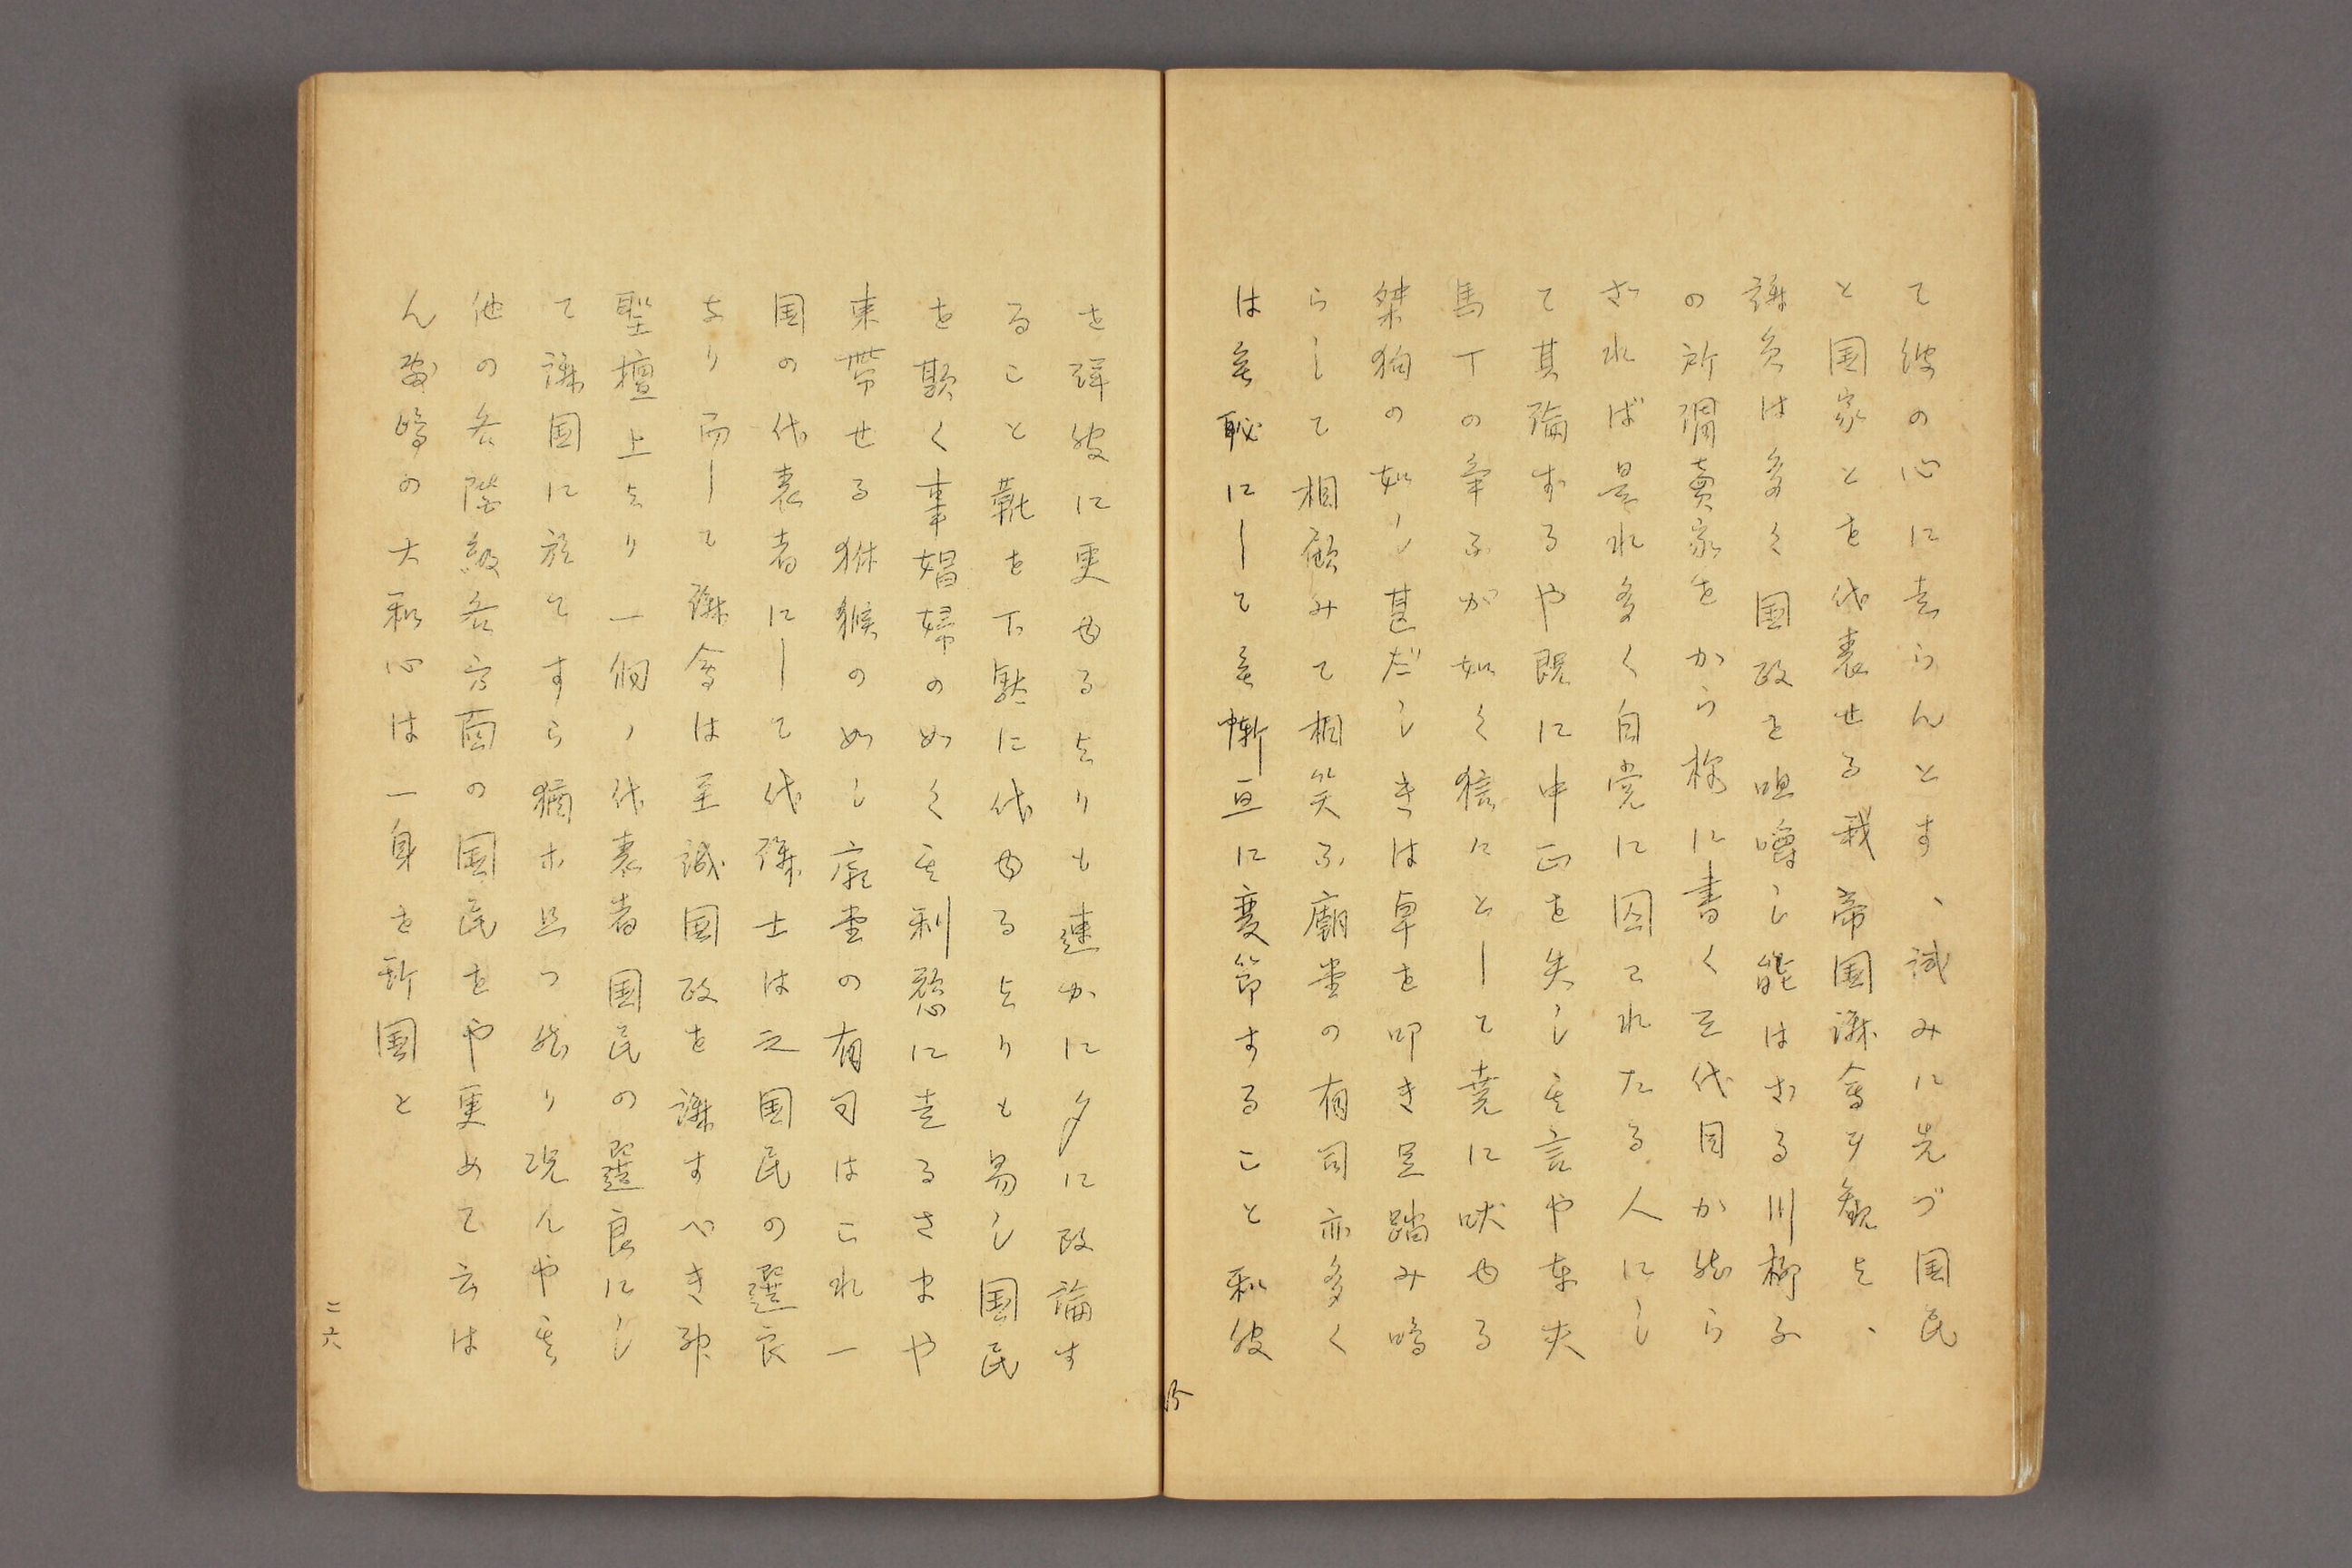 て彼の心に走らんとす、試みに先づ国民
と国家とを代表せる我帝国議会を観よ、
議員は多く国政を咀嚼し能はざる川柳子
の所謂売家をから様に書く三代目か然ら
ざれば是れ多く自党に囚われたる人にし
て其論ずるや既に中正を失し其言や車夫
馬丁の争ふが如く狺にとして尭に吠ゆる
桀狗の如し甚だしきは卓を叩き足踏み鳴
らして相顧みて相笑ふ廟堂の有司亦多く
は無恥にして無慚亘に変節すること和彼
を弾彼に更ゆるよりも速かに夕に政論す
ること靴を下駄に代ゆるよりも易し国民
を欺く事娼婦の如く其利慾に走るさまや
束帯せる猴の如し廟堂の有司はこれ一
国の代表者にして代議士は之国民の選良
なり而して議会は至誠国政を議すべき神
聖壇上より一個ノ代表者国民の選良にし
て議国に於てすら猶ホ且つ然り況んや其
他の各階級各方面の国民をや更めて云は
ん当時の大和心は一身を所国と
二六